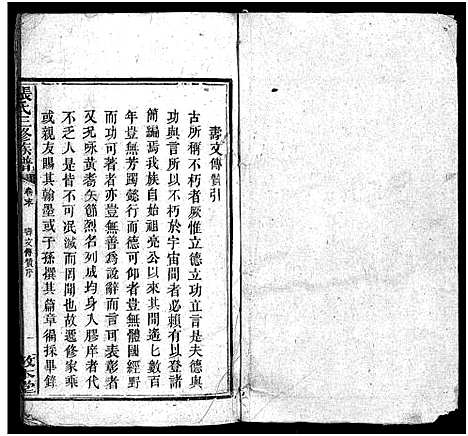 壽文傳贊引
古所稱不朽者厥惟立德立功立言是夫德與
功與言所以不朽於宇宙間者必賴有以登諸
簡編焉我族自始祖亮公以來其間遙七數百
年豈無芳躅懿行而德可仰者豈無體國經野
而功可著者亦豈無善為說辭而言可表彰者
又况咏黃耉矢節烈名列成均身入膠庠者代
不乏人是皆不可冺滅而罔聞也故遇修家乘
或親友賜其翰墨或子孫撰其篇章徧採畢錄
張氏三修族譜 卷末 壽文傳贊序 一 敦本堂